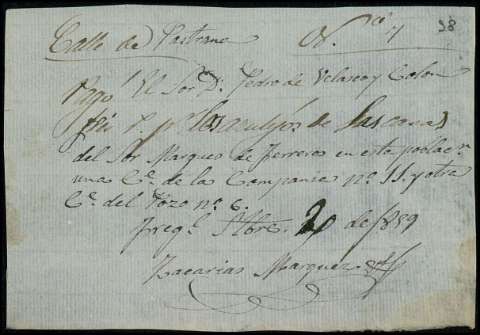 Calle de Pastrana Nº 7 38
Pagó El Sor D. Pedro de Velasco y Colon
seis r. pr los azulejos de las casas
del Sor Marques de Ferreros en esta poblacn
una Cª de la Compania nº 11. y otra
Cª del Pozo nº 6.
de 1859
Zacarias Marquez